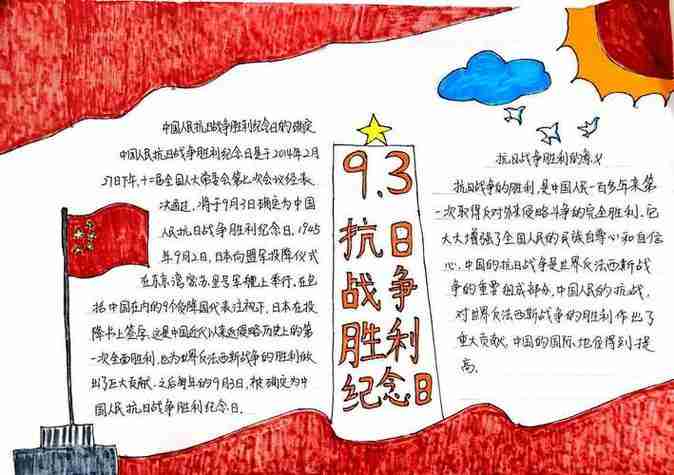 中国人民抗日战争胜利纪念日的确定
中国人民抗日战争胜利纪念日是于2014年2月
27日下午,十二届全国人大常委会第七次会议经表
决通过,将于9月3日确定为中国
人民抗日战争胜利纪念日,1945
年9月2日,日本向盟军投降仪式
在东京湾密苏里号军舰上举行,在包
括中国在内的9个受降国代表注视下,日本在投
降书上签字。这是中国近代以来反侵略历史上的第
一次全面胜利,也为世界反法西斯战争的胜利做
出了巨大贡献。之后每年的9月3日,被确定为中
国人民抗日战争胜利纪念日。
9.3
抗日
战争
胜利
纪念日
抗日战争胜利的意义
抗日战争的胜利,是中国人民一百多年来第
一次取得反对外来侵略斗争的完全胜利,它
大大增强了全国人民的民族自尊心和自信
心,中国的抗日战争是世界反法西斯战
争的重要组成部分,中国人民的抗战,
对世界反法西斯战争的胜利作出了
重大贡献,中国的国际地位得到提
高。